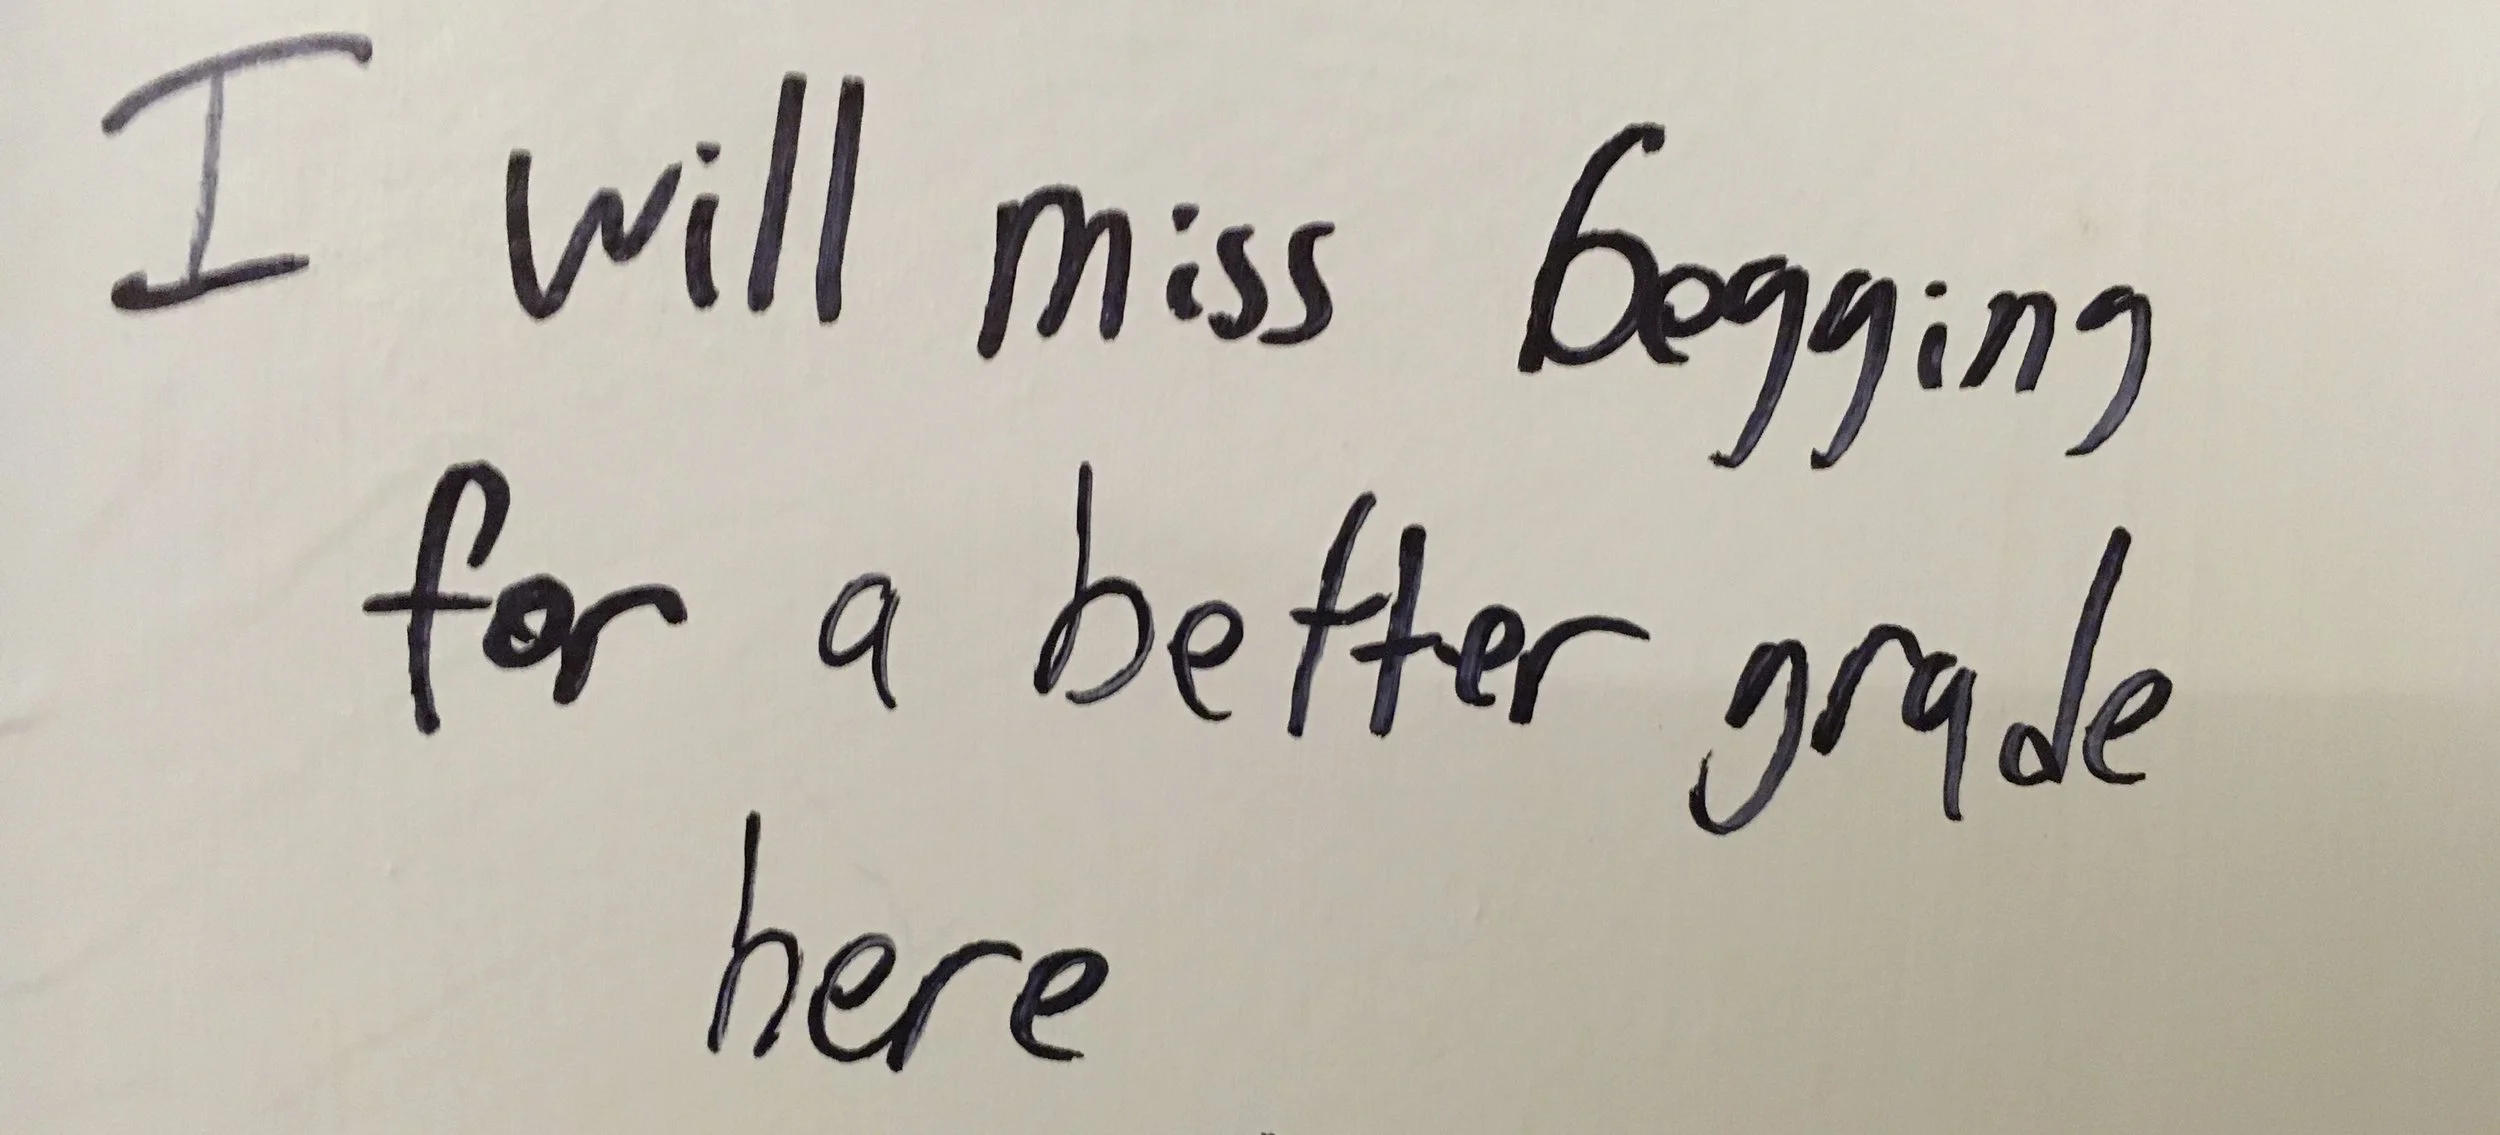 I will miss begging
for a better grade
here